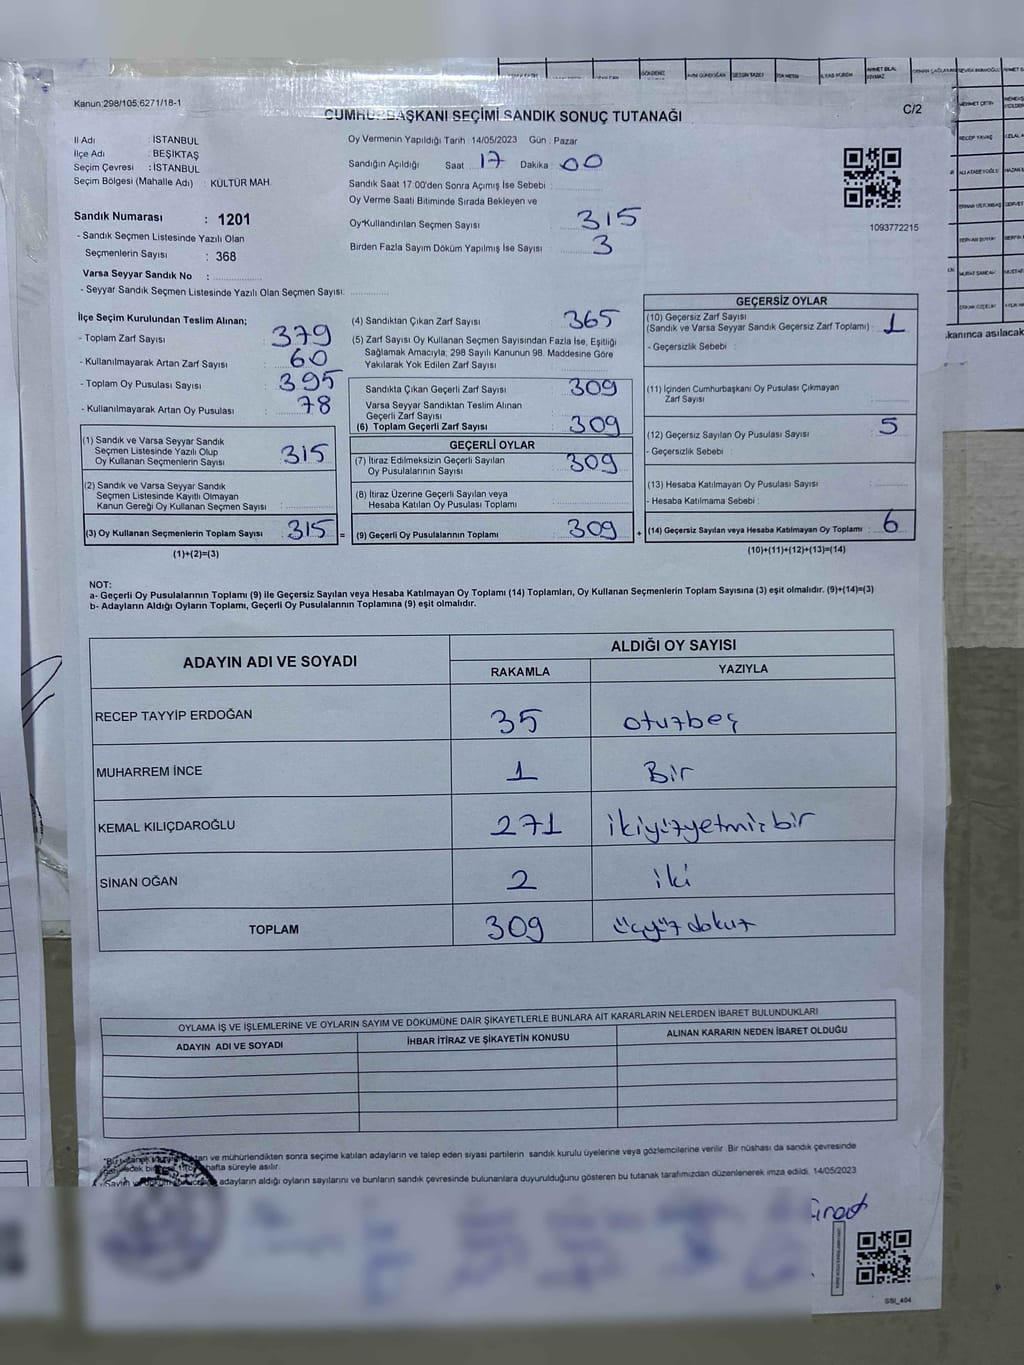 Kanun:298/105;6271/18-1
CUMHURBAŞKANI SEÇİMİ SANDIK SONUÇ TUTANAĞI
C/2
İl Adı : İSTANBUL
İlçe Adı : BEŞİKTAŞ
Seçim Çevresi : İSTANBUL
Seçim Bölgesi (Mahalle Adı) : KÜLTÜR MAH.
Sandık Numarası : 1201
- Sandık Seçmen Listesinde Yazılı Olan
Seçmenlerin Sayısı : 368
Varsa Seyyar Sandık No :
- Seyyar Sandık Seçmen Listesinde Yazılı Olan Seçmen Sayısı:
Oy Vermenin Yapıldığı Tarih 14/05/2023 Gün : Pazar
Sandığın Açıldığı Saat 17 Dakika 00
Sandık Saat 17:00'den Sonra Açımış İse Sebebi :
Oy Verme Saati Bitiminde Sırada Bekleyen ve
Oy Kullandırılan Seçmen Sayısı 315
Birden Fazla Sayım Döküm Yapılmış İse Sayısı 3
1093772215
İlçe Seçim Kurulundan Teslim Alınan;
- Toplam Zarf Sayısı 379
- Kullanılmayarak Artan Zarf Sayısı 60
- Toplam Oy Pusulası Sayısı 395
- Kullanılmayarak Artan Oy Pusulası 78
(1) Sandık ve Varsa Seyyar Sandık
Seçmen Listesinde Yazılı Olup
Oy Kullanan Seçmenlerin Sayısı 315
(2) Sandık ve Varsa Seyyar Sandık
Seçmen Listesinde Kayıtlı Olmayan
Kanun Gereği Oy Kullanan Seçmen Sayısı
(3) Oy Kullanan Seçmenlerin Toplam Sayısı 315 =
(1)+(2)=(3)
(4) Sandıktan Çıkan Zarf Sayısı 365
(5) Zarf Sayısı Oy Kullanan Seçmen Sayısından Fazla İse, Eşitliği
Sağlamak Amacıyla, 298 Sayılı Kanunun 98. Maddesine Göre
Yakılarak Yok Edilen Zarf Sayısı
Sandıkta Çıkan Geçerli Zarf Sayısı 309
Varsa Seyyar Sandıktan Teslim Alınan
Geçerli Zarf Sayısı
(6) Toplam Geçerli Zarf Sayısı 309
GEÇERLİ OYLAR
(7) İtiraz Edilmeksizin Geçerli Sayılan
Oy Pusulalarının Sayısı 309
(8) İtiraz Üzerine Geçerli Sayılan veya
Hesaba Katılan Oy Pusulası Toplamı
(9) Geçerli Oy Pusulalarının Toplamı 309 +
GEÇERSİZ OYLAR
(10) Geçersiz Zarf Sayısı
(Sandık ve Varsa Seyyar Sandık Geçersiz Zarf Toplamı) : 1
- Geçersizlik Sebebi :
(11) İçinden Cumhurbaşkanı Oy Pusulası Çıkmayan
Zarf Sayısı
(12) Geçersiz Sayılan Oy Pusulası Sayısı 5
- Geçersizlik Sebebi :
(13) Hesaba Katılmayan Oy Pusulası Sayısı
- Hesaba Katılmama Sebebi :
(14) Geçersiz Sayılan veya Hesaba Katılmayan Oy Toplamı 6
(10)+(11)+(12)+(13)=(14)
NOT:
a- Geçerli Oy Pusulalarının Toplamı (9) ile Geçersiz Sayılan veya Hesaba Katılmayan Oy Toplamı (14) Toplamları, Oy Kullanan Seçmenlerin Toplam Sayısına (3) eşit olmalıdır. (9)+(14)=(3)
b- Adayların Aldığı Oyların Toplamı, Geçerli Oy Pusulalarının Toplamına (9) eşit olmalıdır.
ADAYIN ADI VE SOYADI ALDIĞI OY SAYISI
RAKAMLA YAZIYLA
RECEP TAYYİP ERDOĞAN 35 otuzbeş
MUHARREM İNCE 1 Bir
KEMAL KILIÇDAROĞLU 271 ikiyüzyetmiş bir
SİNAN OĞAN 2 iki
TOPLAM 309 üçyüz dokuz
OYLAMA İŞ VE İŞLEMLERİNE VE OYLARIN SAYIM VE DÖKÜMÜNE DAİR ŞİKAYETLERLE BUNLARA AİT KARARLARIN NELERDEN İBARET BULUNDUKLARI
ADAYIN ADI VE SOYADI İHBAR İTİRAZ VE ŞİKAYETİN KONUSU ALINAN KARARIN NEDEN İBARET OLDUĞU
ve mühürlendikten sonra seçime katılan adayların ve talep eden siyasi partilerin sandık kurulu üyelerine veya gözlemcilerine verilir. Bir nüshası da sandık çevresinde
hafta süreyle asılır.
adayların aldığı oyların sayılarını ve bunların sandık çevresinde bulunanlara duyurulduğunu gösteren bu tutanak tarafımızdan düzenlenerek imza edildi. 14/05/2023
SSİ_404